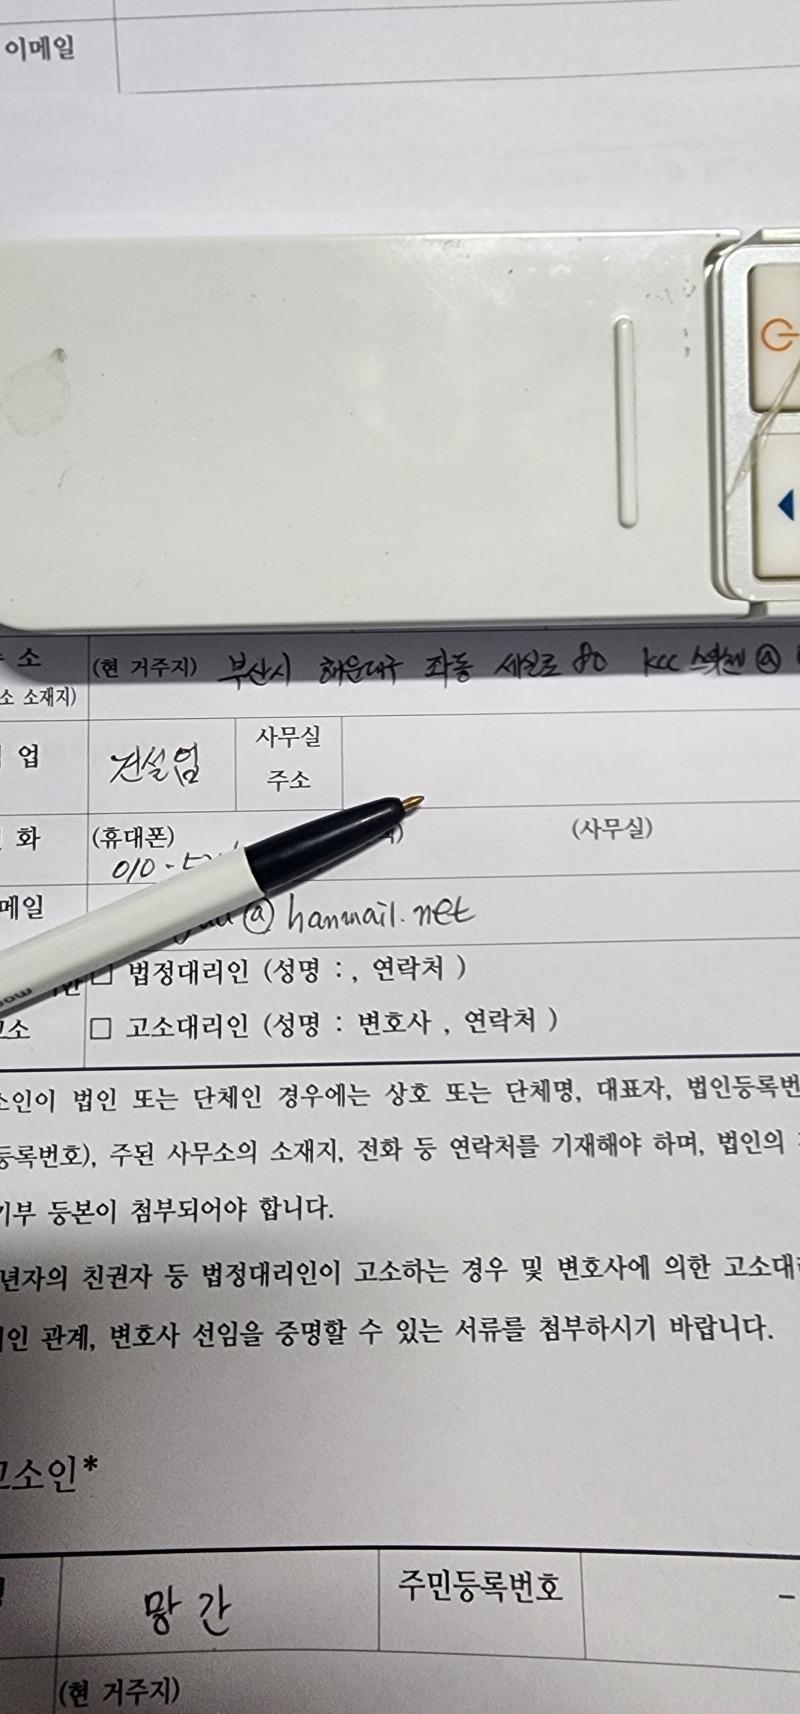 이메일
소
(현 거주지) 부산시 해운대구 좌동 세실로 80 kcc 스위첸 @
소 소재지)
업
건설업
사무실
주소
화
(휴대폰)
(사무실)
010-
메일
@ hanmail.net
□ 법정대리인 (성명 : , 연락처 )
소
□ 고소대리인 (성명 : 변호사 , 연락처 )
소인이 법인 또는 단체인 경우에는 상호 또는 단체명, 대표자, 법인등록번
등록번호), 주된 사무소의 소재지, 전화 등 연락처를 기재해야 하며, 법인의
기부 등본이 첨부되어야 합니다.
년자의 친권자 등 법정대리인이 고소하는 경우 및 변호사에 의한 고소대
인 관계, 변호사 선임을 증명할 수 있는 서류를 첨부하시기 바랍니다.
고소인*
망간
주민등록번호
-
(현 거주지)